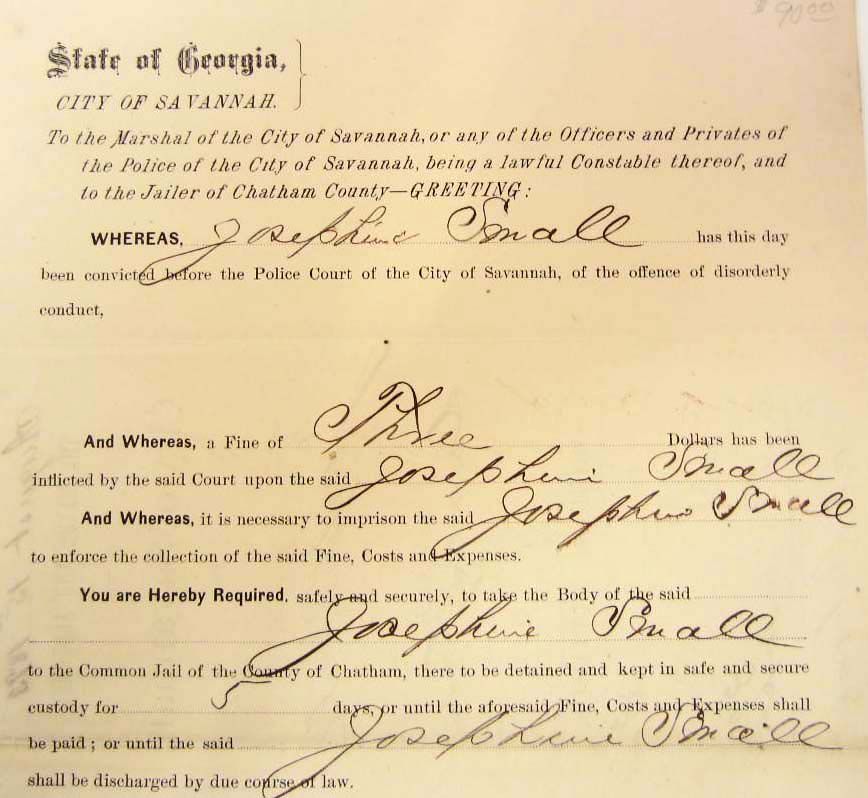 $ 90.00
State of Georgia,
CITY OF SAVANNAH.
To the Marshal of the City of Savannah, or any of the Officers and Privates of
the Police of the City of Savannah, being a lawful Constable thereof, and
to the Jailer of Chatham County—GREETING:
WHEREAS, Josephine Small has this day
been convicted before the Police Court of the City of Savannah, of the offence of disorderly
conduct,
And Whereas, a Fine of Three Dollars has been
inflicted by the said Court upon the said Josephine Small
And Whereas, it is necessary to imprison the said Josephine Small
to enforce the collection of the said Fine, Costs and Expenses.
You are Hereby Required, safely and securely, to take the Body of the said
Josephine Small
to the Common Jail of the County of Chatham, there to be detained and kept in safe and secure
custody for 5 days, or until the aforesaid Fine, Costs and Expenses shall
be paid; or until the said Josephine Small
shall be discharged by due course of law.